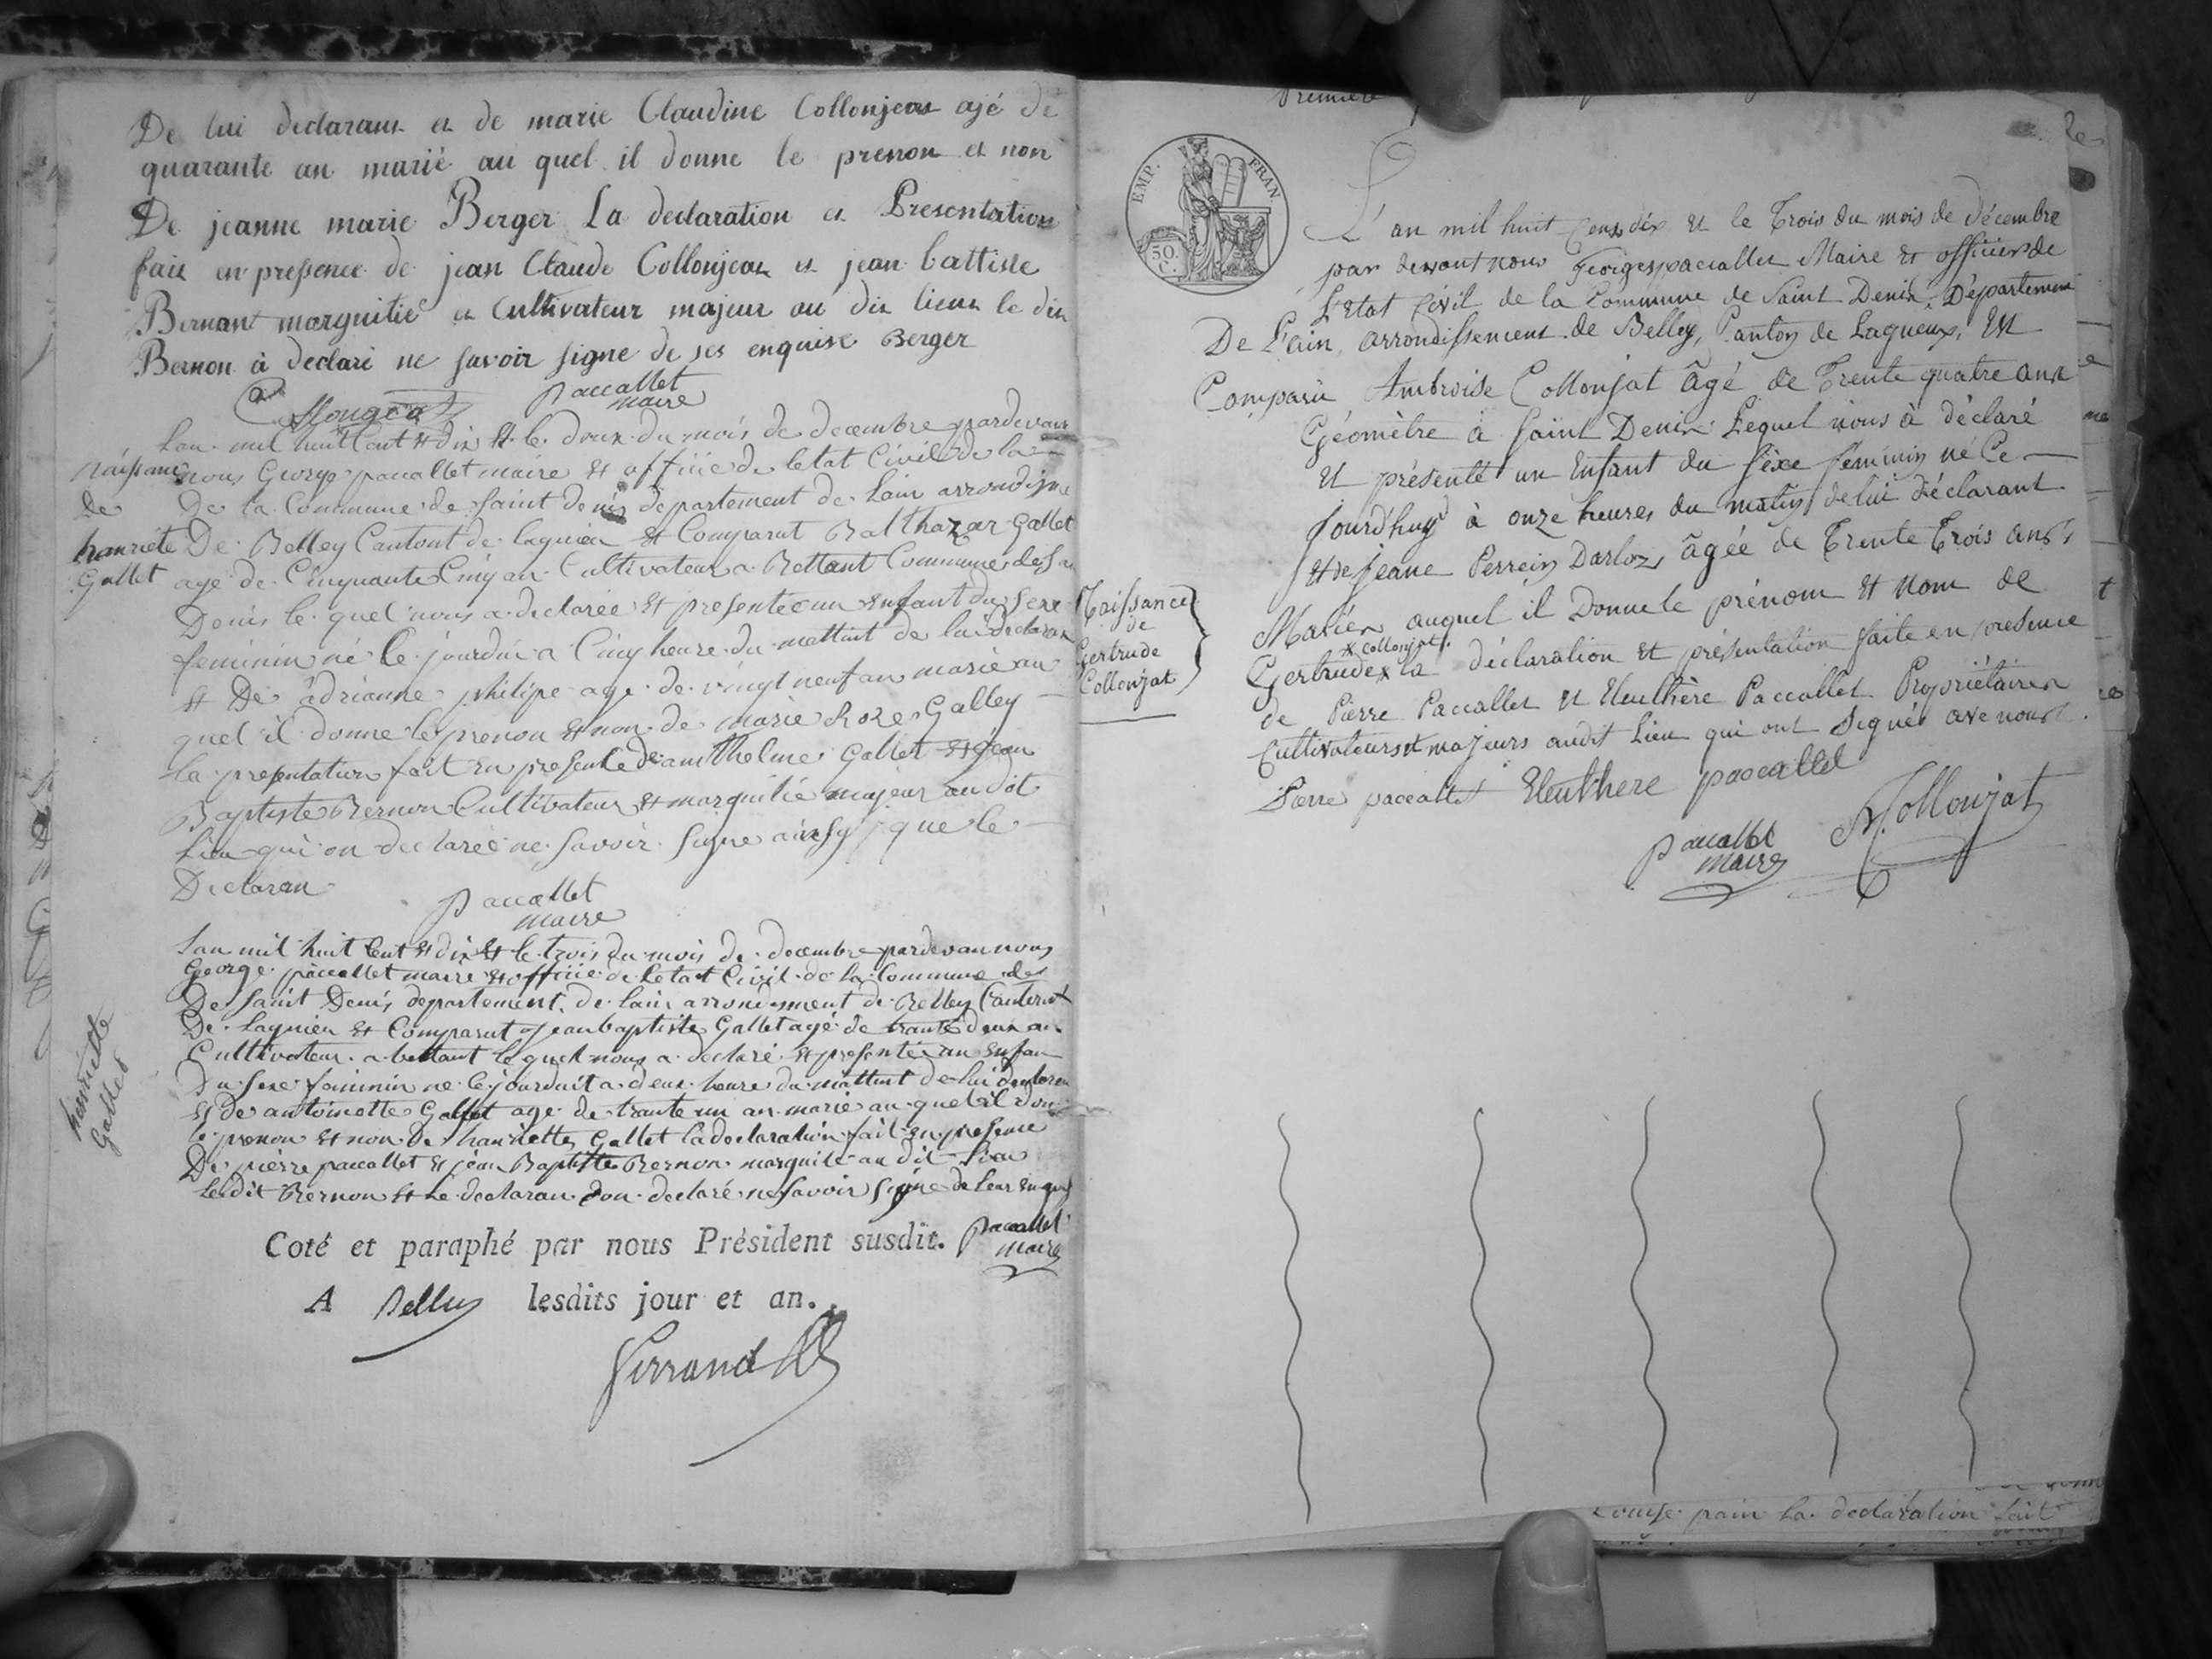 De lui declarant et de marie Claudine Collonjeat ajé de
quarante an marié au quel il donne le prenon et non
De jeanne marie Berger La declaration et Presentation
fait en pressence de jean Claude Collonjeat et jean battiste
Bernant marguitié et Cultivateur majeur au dit lieux le dit
Bernon à declaré ne savoir signe de ses enquise Berger
paccallet
maire
Lan mil huit Cent et dix et le deux du mois de decembre pardevant
naissance
de
hanriete
Gallet
nous George paccallet maire et officie de letat Civil de la
De la Commune de saint denis departement de lain arrondisme
De Belley Cantont de lagnieu et Comparut Balthazar Gallet
age de Cinquante Cinq an Cultivateur a Bettant Commune de Sa
Denis le quel nous a declarée et presentée un enfant du sexe
feminin né le jourdui a Cinq heure du mattint de lui declaran
et De adrianne philipe age de vingt neuf an marié au
quel il donne le prenon et non de marie Roze Galley
la presentation fait en presence de anthelme Gallet et jean
Baptiste Bernon Cultivateur et marguilié majeur au dit
Lieu qui on declarée ne savoir signe ainsy que le
Declaran
paccallet
maire
Lan mil huit Cent et dix et le trois du mois de decembre pardevan nous
George paccallet maire et officie de letat Civil de la Commune de
De saint Denis departement de lain arrondisment de Belley Cantont
De Lagnieu et Comparut jean baptiste Gallet agé de trante deux an
Cultivateur a bettant le quel nous a declaré et presentée un enfan
Du sexe feminin ne le jourduit a deux heure du mattint de lui declaran
et de antoinette Gallet age de trante un an marie au quel il don
le prenon et non de hanriette Gallet la declaration fait en presence
De pierre paccallet et jean Baptiste Bernon marguilé au dit Lieu
Ledit Bernon et Le declaran on declaré ne savoir signe de leur enquis
henriette
Gallet
Coté et paraphé par nous Président susdit.
paccallet
maire
A Belley lesdits jour et an.
Ferrand
Premiere
EMP. FRAN
50
C.
L'an mil huit Cent dix et le Trois du mois de décembre
par devant nous Georges paccallet Maire et officier de
L'Etat Civil de la Commune de Saint Denis, Département
De L'ain, arrondissement de Belley, Canton de Lagneux, Est
Comparu Ambroise Collonjat âgé de Trente quatre ans
Géomètre à Saint Denis Lequel nous à déclaré
et présenté un Enfant du sèxe feminin né Ce
Jourd'huy à onze heures du matin de lui déclarant
et de jeane Perrein Darloz, âgée de Trente Trois ans,
Mariés auquel il Donne le prénom et nom de
x Collonjat.
Gertrude x la déclaration et présentation faite en presence
de Pierre Paccallet et Eleuthère Paccallet Propriétaires
Cultivateurs et majeurs audit Lieu qui ont signés ave nous.
Naissance
de
Gertrude
Collonjat
Pierre paccallet Eleuthere paccallet
paccallet
maire
A. Collonjat
Louise pain la declaration fait